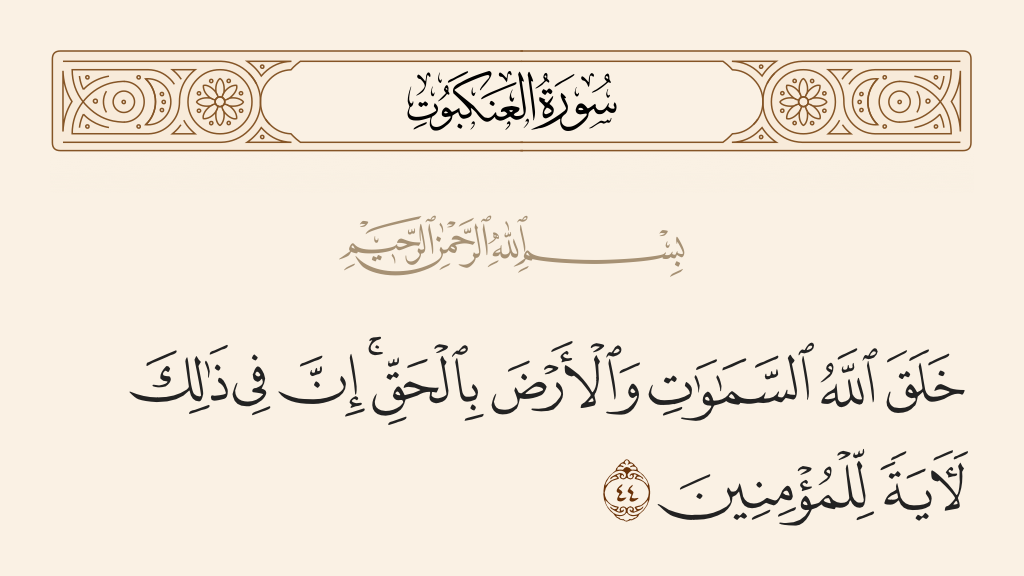 سُورَةُ العَنكَبُوتِ
بِسْمِ ٱللَّهِ ٱلرَّحْمَٰنِ ٱلرَّحِيمِ
خَلَقَ ٱللَّهُ ٱلسَّمَٰوَٰتِ وَٱلْأَرْضَ بِٱلْحَقِّ ۚ إِنَّ فِى ذَٰلِكَ
لَـَٔايَةً لِّلْمُؤْمِنِينَ ٤٤